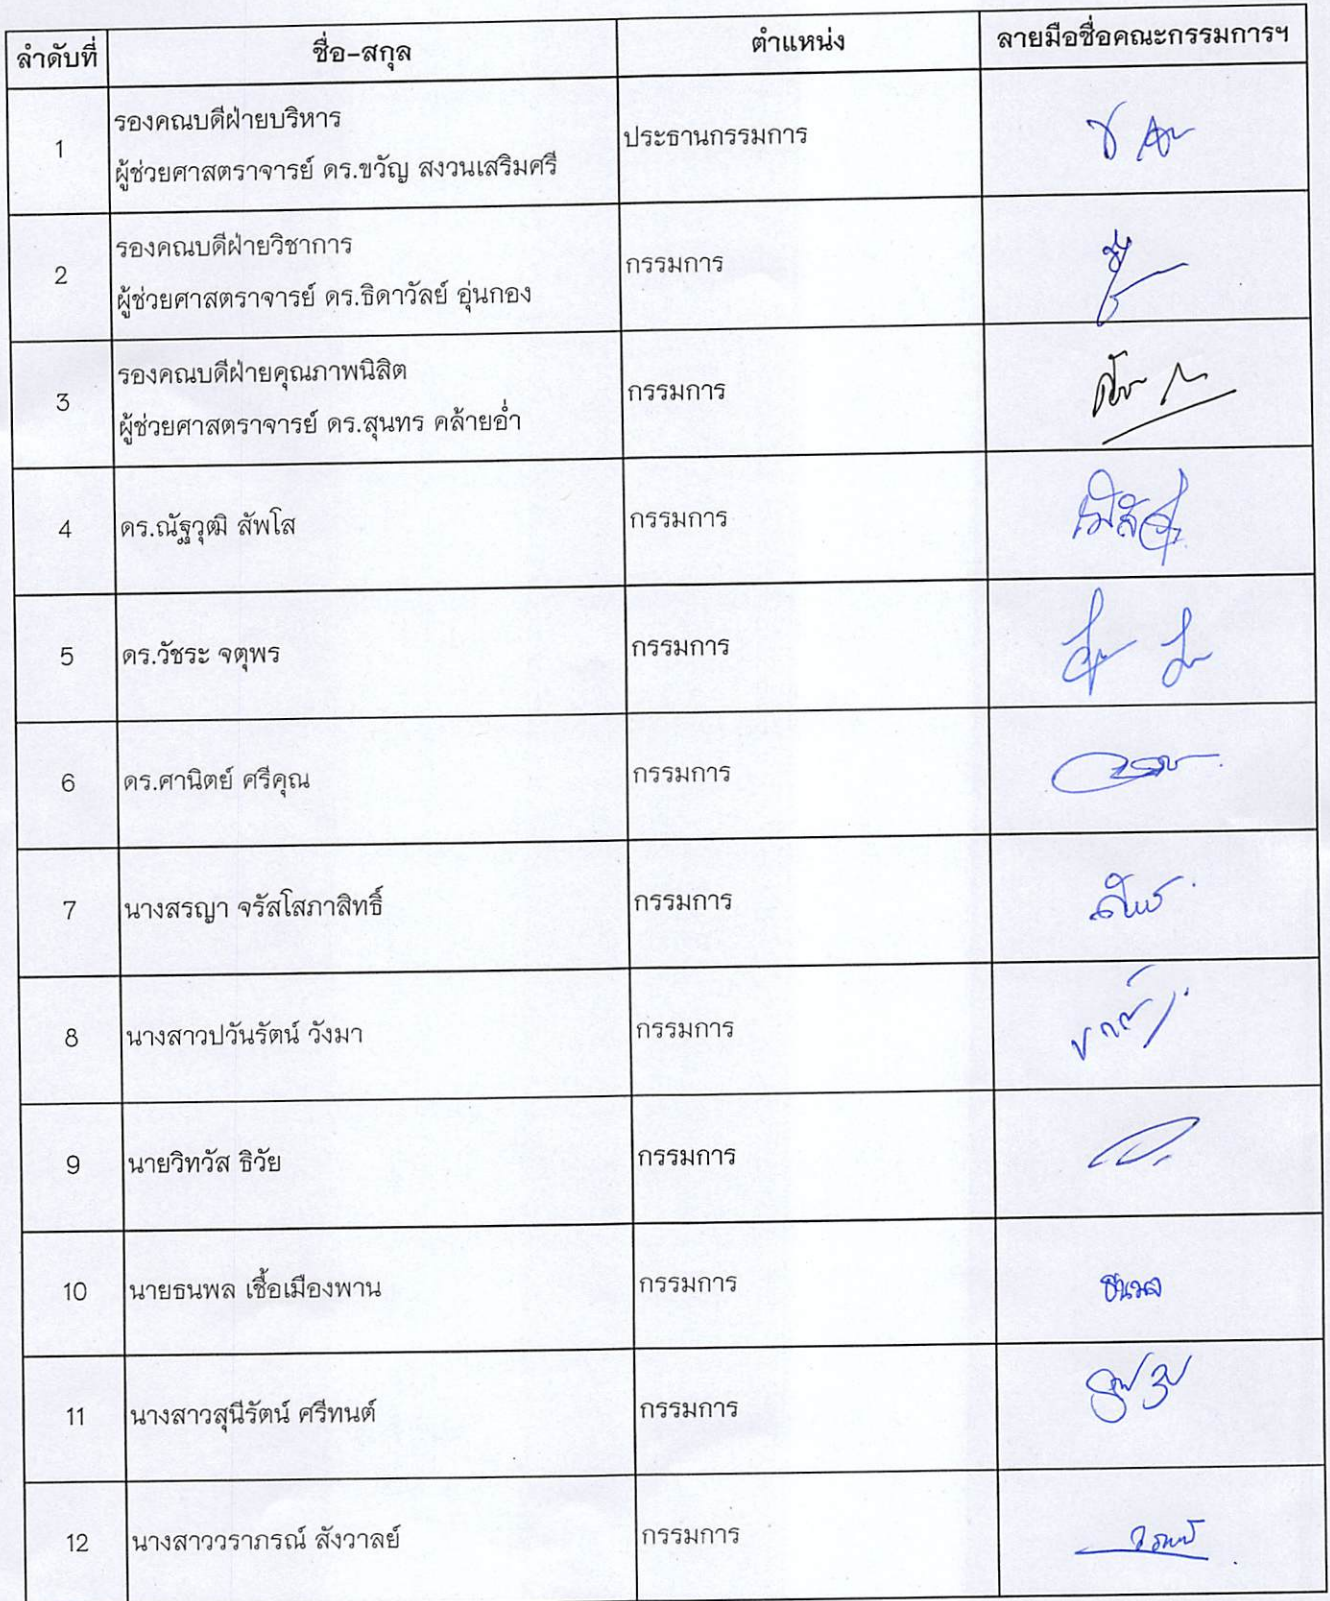 ลำดับที่ ชื่อ-สกุล ตำแหน่ง ลายมือชื่อคณะกรรมการฯ
รองคณบดีฝ่ายบริหาร
1 ประธานกรรมการ
ผู้ช่วยศาสตราจารย์ ดร.ขวัญ สงวนเสริมศรี
รองคณบดีฝ่ายวิชาการ
2 กรรมการ
ผู้ช่วยศาสตราจารย์ ดร.ธิดาวัลย์ อุ่นกอง
รองคณบดีฝ่ายคุณภาพนิสิต
3 กรรมการ
ผู้ช่วยศาสตราจารย์ ดร.สุนทร คล้ายอ่ำ
4 ดร.ณัฐวุฒิ สัพโส กรรมการ
5 ดร.วัชระ จตุพร กรรมการ
6 ดร.ศานิตย์ ศรีคุณ กรรมการ
7 นางสรญา จรัสโสภาสิทธิ์ กรรมการ
8 นางสาวปวันรัตน์ วังมา กรรมการ
9 นายวิทวัส ธิวัย กรรมการ
10 นายธนพล เชื้อเมืองพาน กรรมการ ธนพล
11 นางสาวสุนีรัตน์ ศรีทนต์ กรรมการ
12 นางสาววราภรณ์ สังวาลย์ กรรมการ